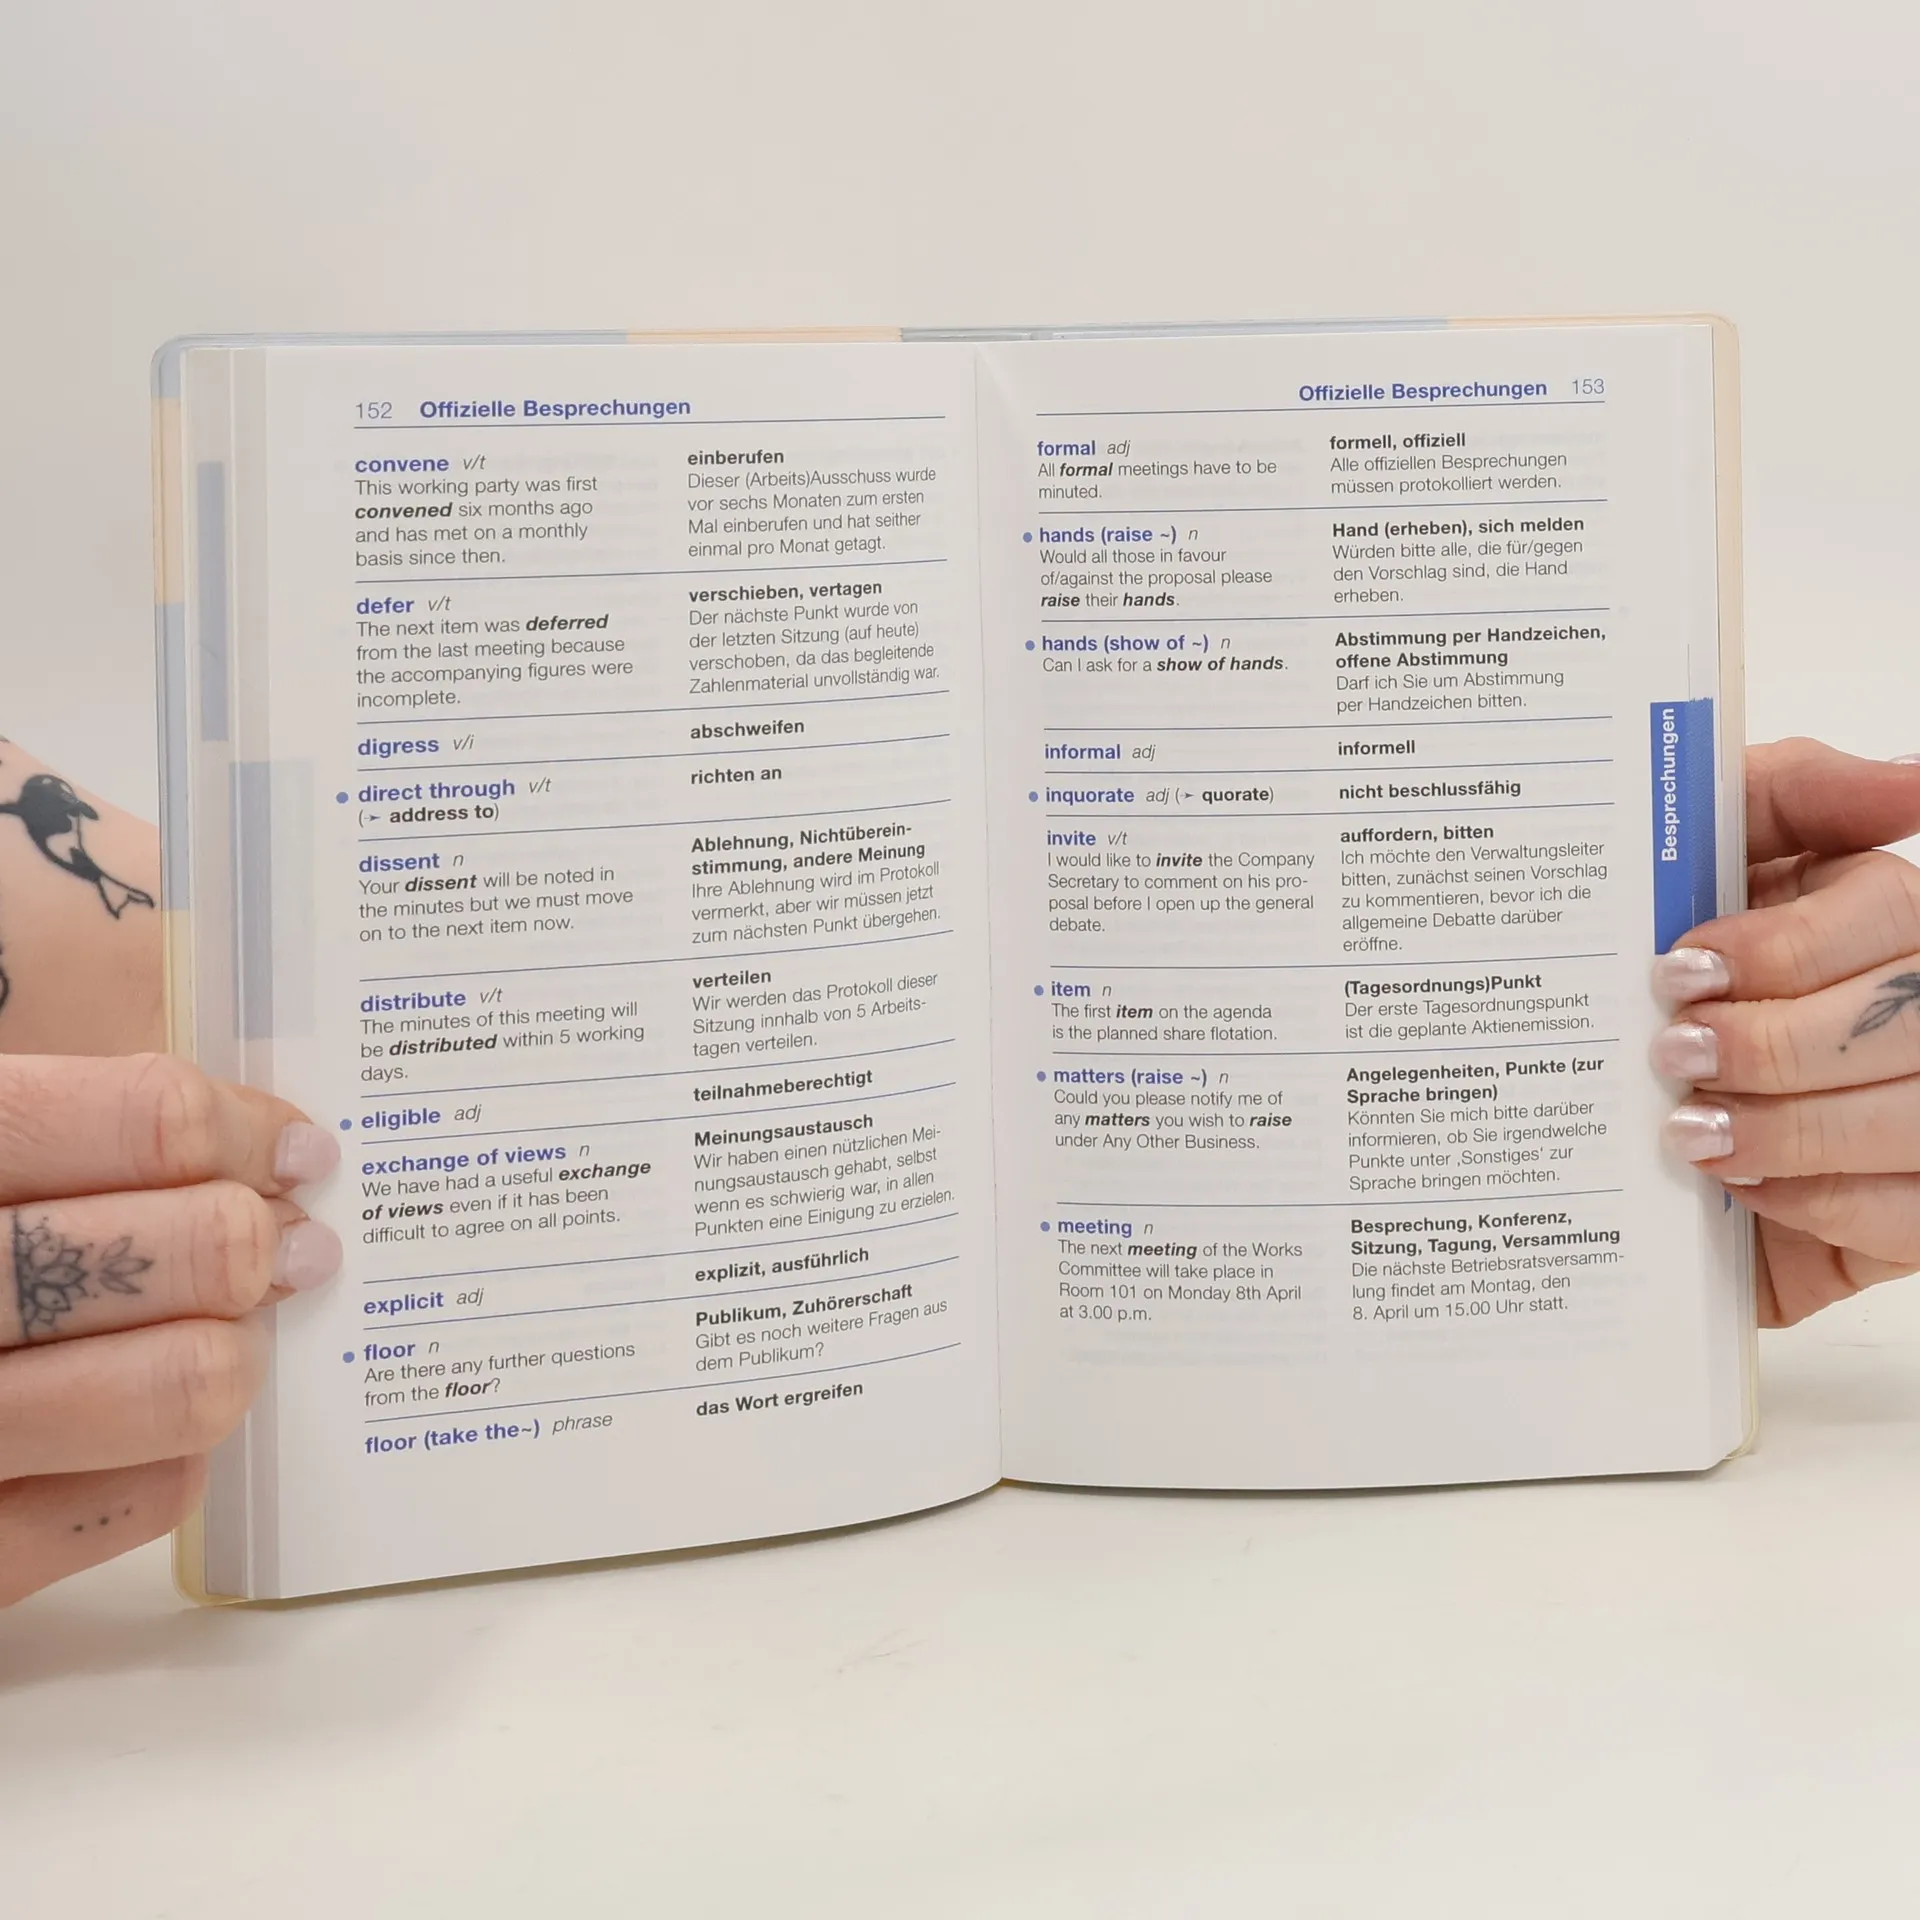 152 Offizielle Besprechungen
convene v/t
This working party was first
convened six months ago
and has met on a monthly
basis since then.
einberufen
Dieser (Arbeits)Ausschuss wurde
vor sechs Monaten zum ersten
Mal einberufen und hat seither
einmal pro Monat getagt.
defer v/t
The next item was deferred
from the last meeting because
the accompanying figures were
incomplete.
verschieben, vertagen
Der nächste Punkt wurde von
der letzten Sitzung (auf heute)
verschoben, da das begleitende
Zahlenmaterial unvollständig war.
digress v/i
abschweifen
• direct through v/t
(➛ address to)
richten an
dissent n
Your dissent will be noted in
the minutes but we must move
on to the next item now.
Ablehnung, Nichtüberein-
stimmung, andere Meinung
Ihre Ablehnung wird im Protokoll
vermerkt, aber wir müssen jetzt
zum nächsten Punkt übergehen.
distribute v/t
The minutes of this meeting will
be distributed within 5 working
days.
verteilen
Wir werden das Protokoll dieser
Sitzung innhalb von 5 Arbeits-
tagen verteilen.
• eligible adj
teilnahmeberechtigt
exchange of views n
We have had a useful exchange
of views even if it has been
difficult to agree on all points.
Meinungsaustausch
Wir haben einen nützlichen Mei-
nungsaustausch gehabt, selbst
wenn es schwierig war, in allen
Punkten eine Einigung zu erzielen.
explicit adj
explizit, ausführlich
• floor n
Are there any further questions
from the floor?
Publikum, Zuhörerschaft
Gibt es noch weitere Fragen aus
dem Publikum?
floor (take the~) phrase
das Wort ergreifen
Offizielle Besprechungen 153
formal adj
All formal meetings have to be
minuted.
formell, offiziell
Alle offiziellen Besprechungen
müssen protokolliert werden.
• hands (raise ~) n
Would all those in favour
of/against the proposal please
raise their hands.
Hand (erheben), sich melden
Würden bitte alle, die für/gegen
den Vorschlag sind, die Hand
erheben.
• hands (show of ~) n
Can I ask for a show of hands.
Abstimmung per Handzeichen,
offene Abstimmung
Darf ich Sie um Abstimmung
per Handzeichen bitten.
informal adj
informell
• inquorate adj (➛ quorate)
nicht beschlussfähig
invite v/t
I would like to invite the Company
Secretary to comment on his pro-
posal before I open up the general
debate.
auffordern, bitten
Ich möchte den Verwaltungsleiter
bitten, zunächst seinen Vorschlag
zu kommentieren, bevor ich die
allgemeine Debatte darüber
eröffne.
• item n
The first item on the agenda
is the planned share flotation.
(Tagesordnungs)Punkt
Der erste Tagesordnungspunkt
ist die geplante Aktienemission.
• matters (raise ~) n
Could you please notify me of
any matters you wish to raise
under Any Other Business.
Angelegenheiten, Punkte (zur
Sprache bringen)
Könnten Sie mich bitte darüber
informieren, ob Sie irgendwelche
Punkte unter ‚Sonstiges‘ zur
Sprache bringen möchten.
• meeting n
The next meeting of the Works
Committee will take place in
Room 101 on Monday 8th April
at 3.00 p.m.
Besprechung, Konferenz,
Sitzung, Tagung, Versammlung
Die nächste Betriebsratsversamm-
lung findet am Montag, den
8. April um 15.00 Uhr statt.
Besprechungen